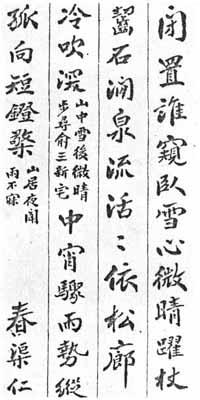 閉置誰窺臥雪心微晴躍杖
齧石澗泉流活〻依松廊
冷吹深
山中雪後微晴
步尋俞三新宅
中宵驟雨勢縱
孤向短鐙檠
山居夜聞
雨不寐
春渠仁